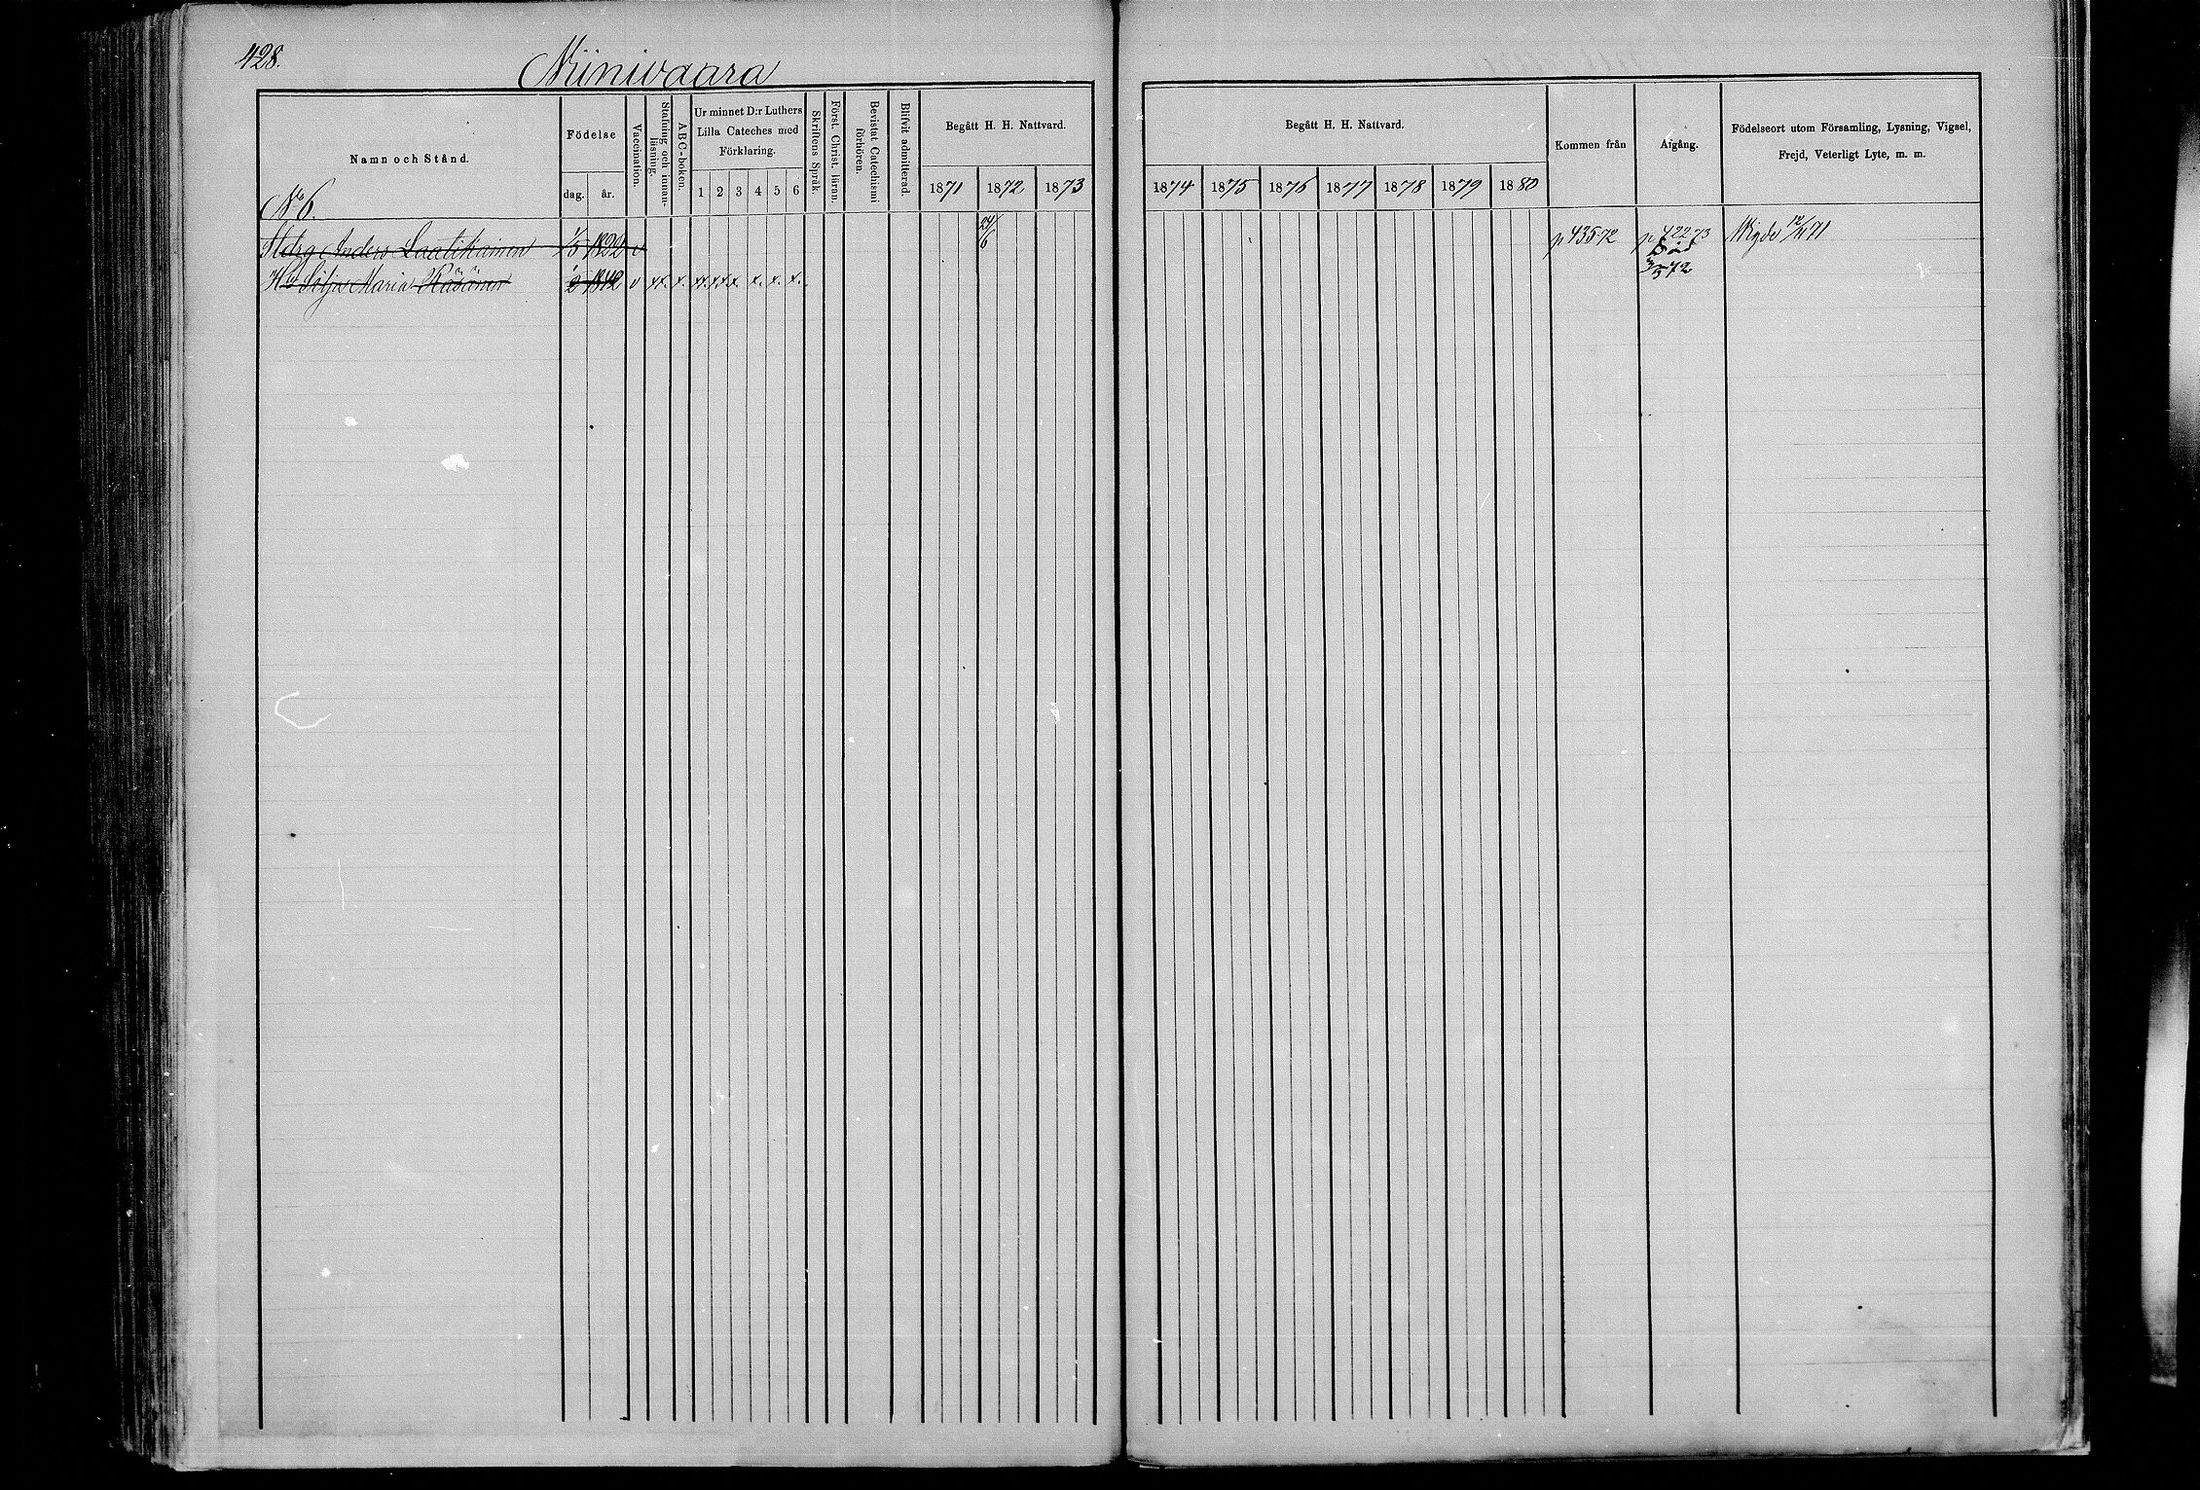 428.
Niinivaara
Namn och Stånd.
Födelse
dag.
år.
Vaccination.
Stafning och innan-
läsning.
ABC-boken.
Ur minnet D:r Luthers
Lilla Cateches med
Förklaring.
1 2 3 4 5 6
Skriftens Språk.
Först. Christ. läran.
Bevistat Catechismi
förhören.
Blifvit admitterad.
Begått H. H. Nattvard.
1871 1872 1873
Begått H. H. Nattvard.
1874 1875 1876 1877 1878 1879 1880
Kommen från
Afgång.
Födelseort utom Församling, Lysning, Vigsel,
Frejd, Veterligt Lyte, m. m.
No 6.
Anders Laatikainen 1/5 1822 v 24/6 p 435 72 p 422 73 Wigde 12/11 71
Död
H. Silja Maria Räsänen 1842 v xx. x. xx. xx x x. x. x. 3/5 72